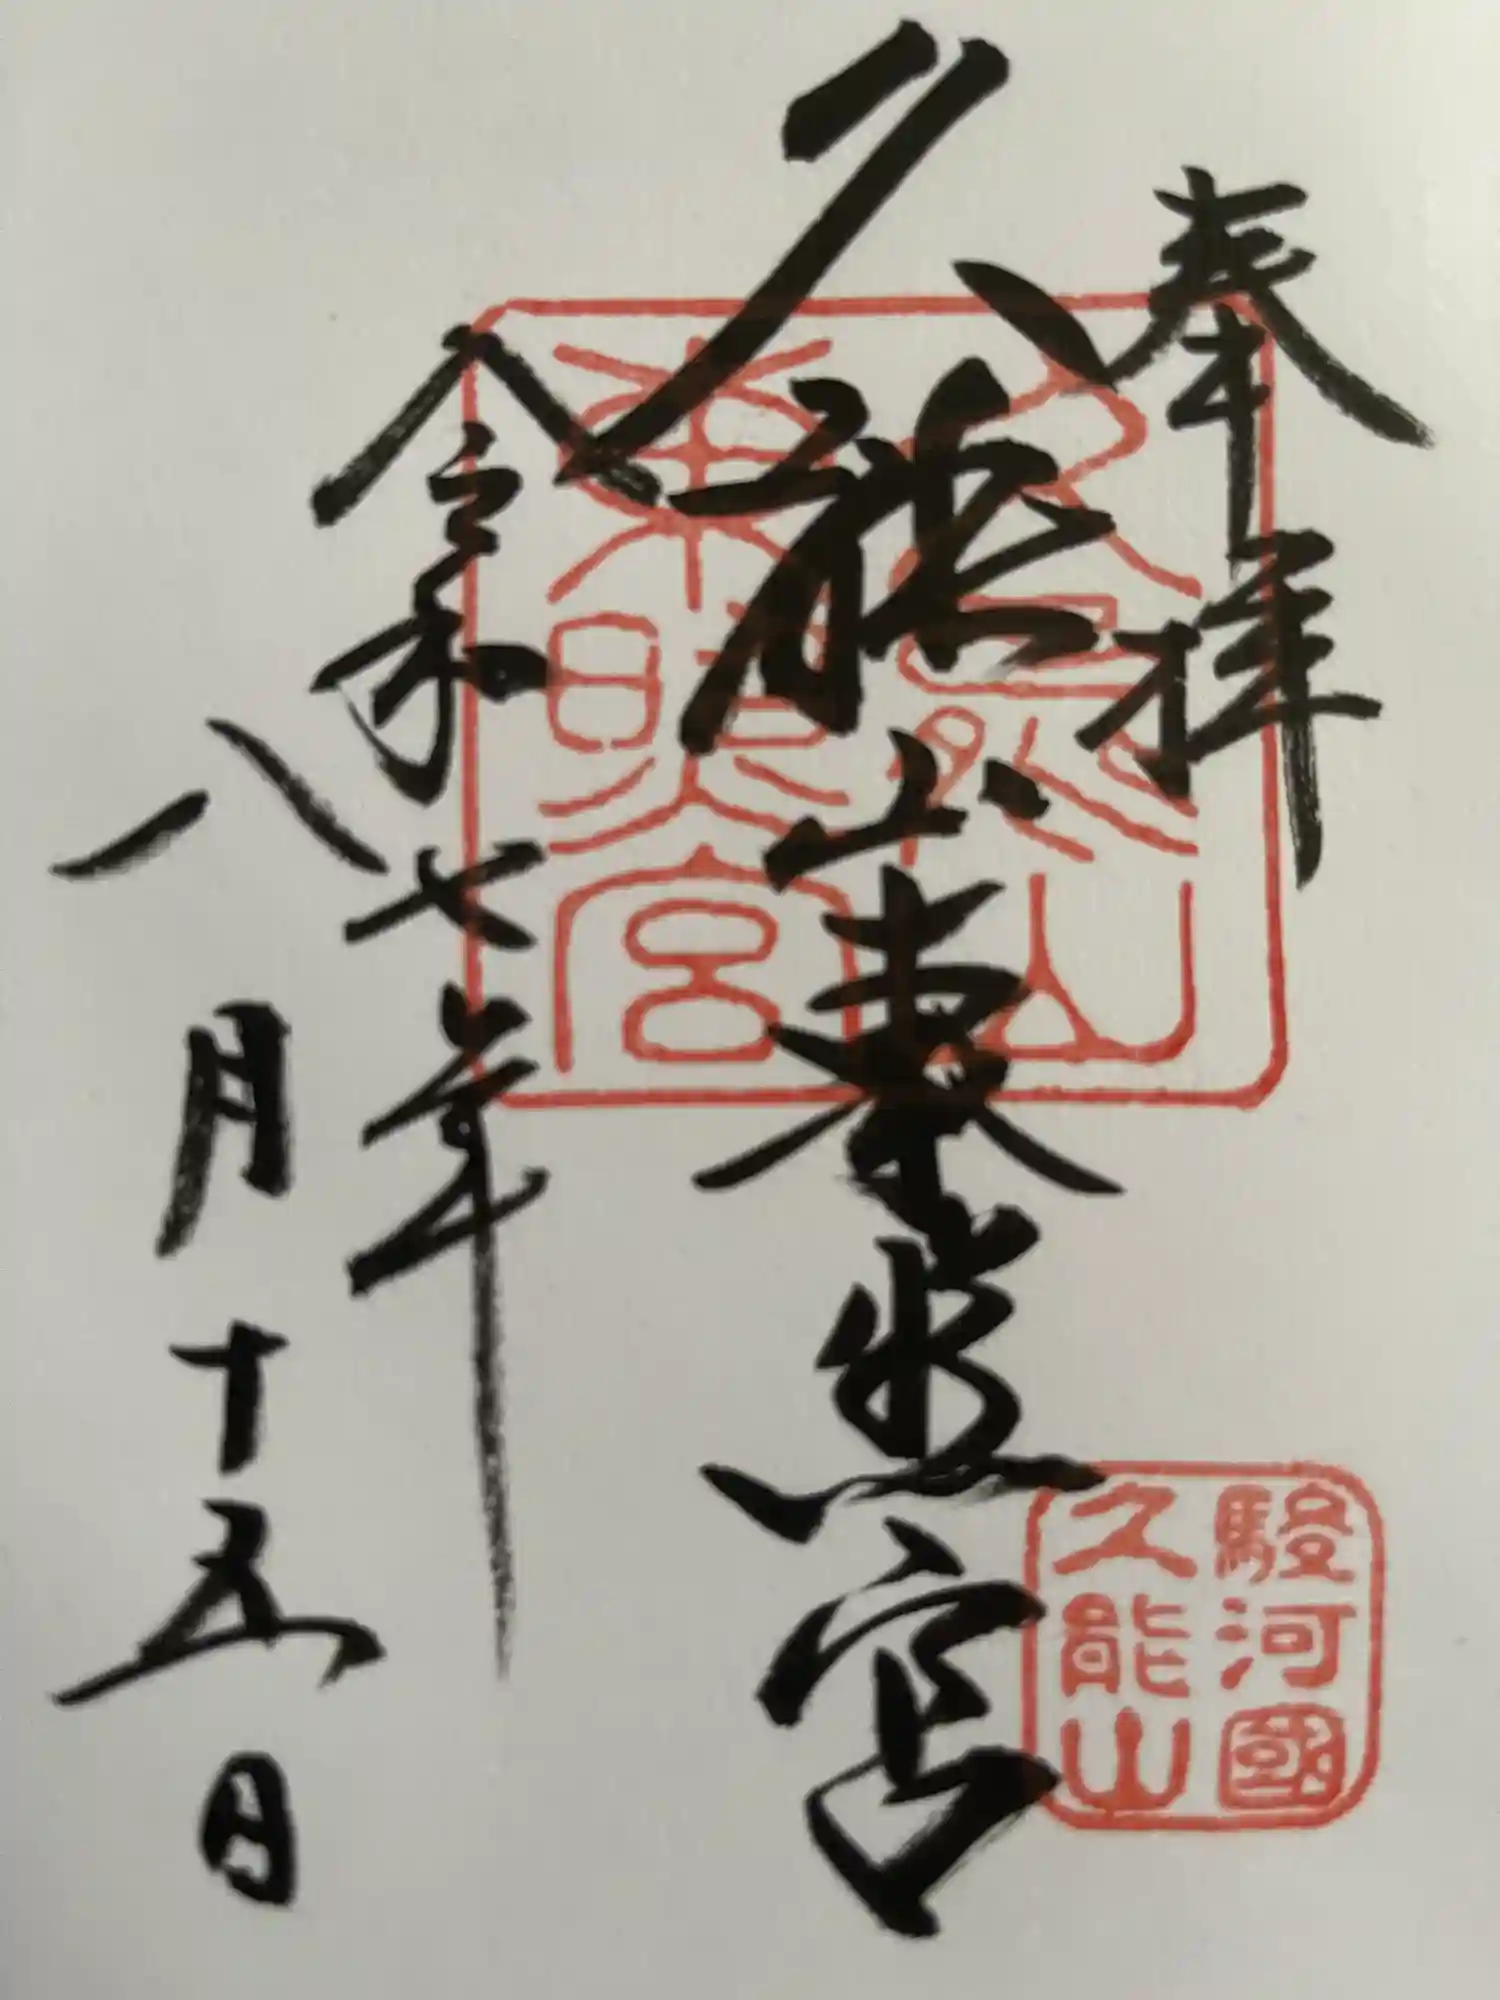 奉拝
久能山東照宮
令和七年
八月十五日
久能山
東照宮
駿河國
久能山